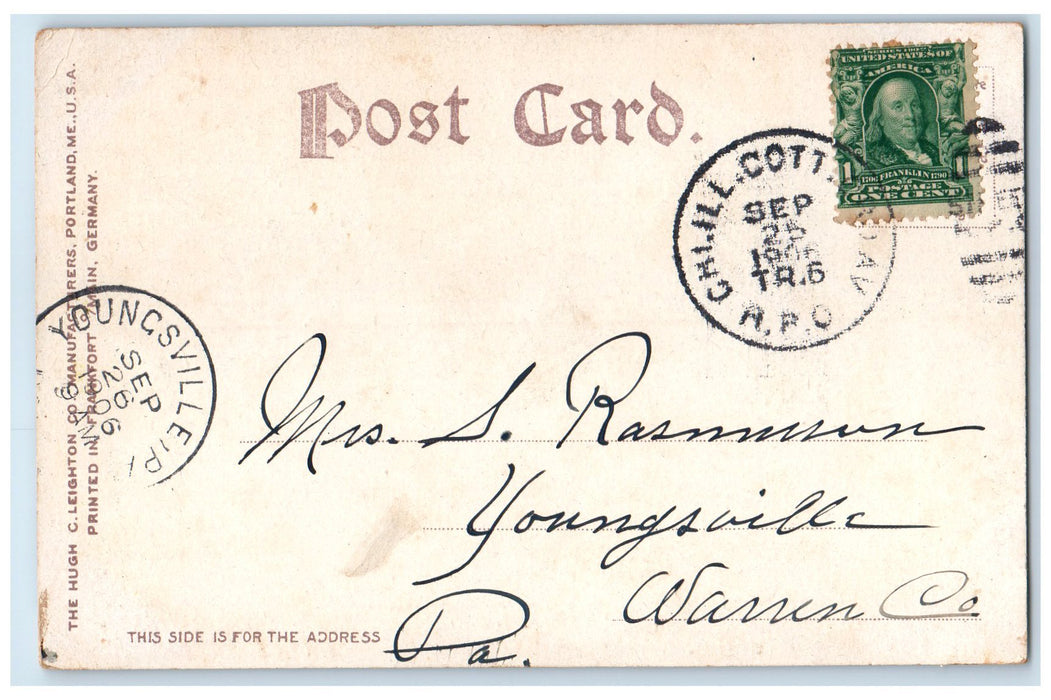 Post Card.
SERIES 1902
UNITED STATES OF
AMERICA
1706 FRANKLIN 1790
1 1
POSTAGE
ONE CENT
CHI. ILL. COTT. DAV
SEP
25
1906
TR.6
R.P.O
THE HUGH C. LEIGHTON CO. MANUFACTURERS, PORTLAND, ME., U.S.A.
PRINTED IN FRANKFORT MAIN, GERMANY.
YOUNGSVILLE, PA
SEP
26
1906
9 AM
Mrs. S. Rasmusson
Youngsville
Warren Co
Pa.
THIS SIDE IS FOR THE ADDRESS